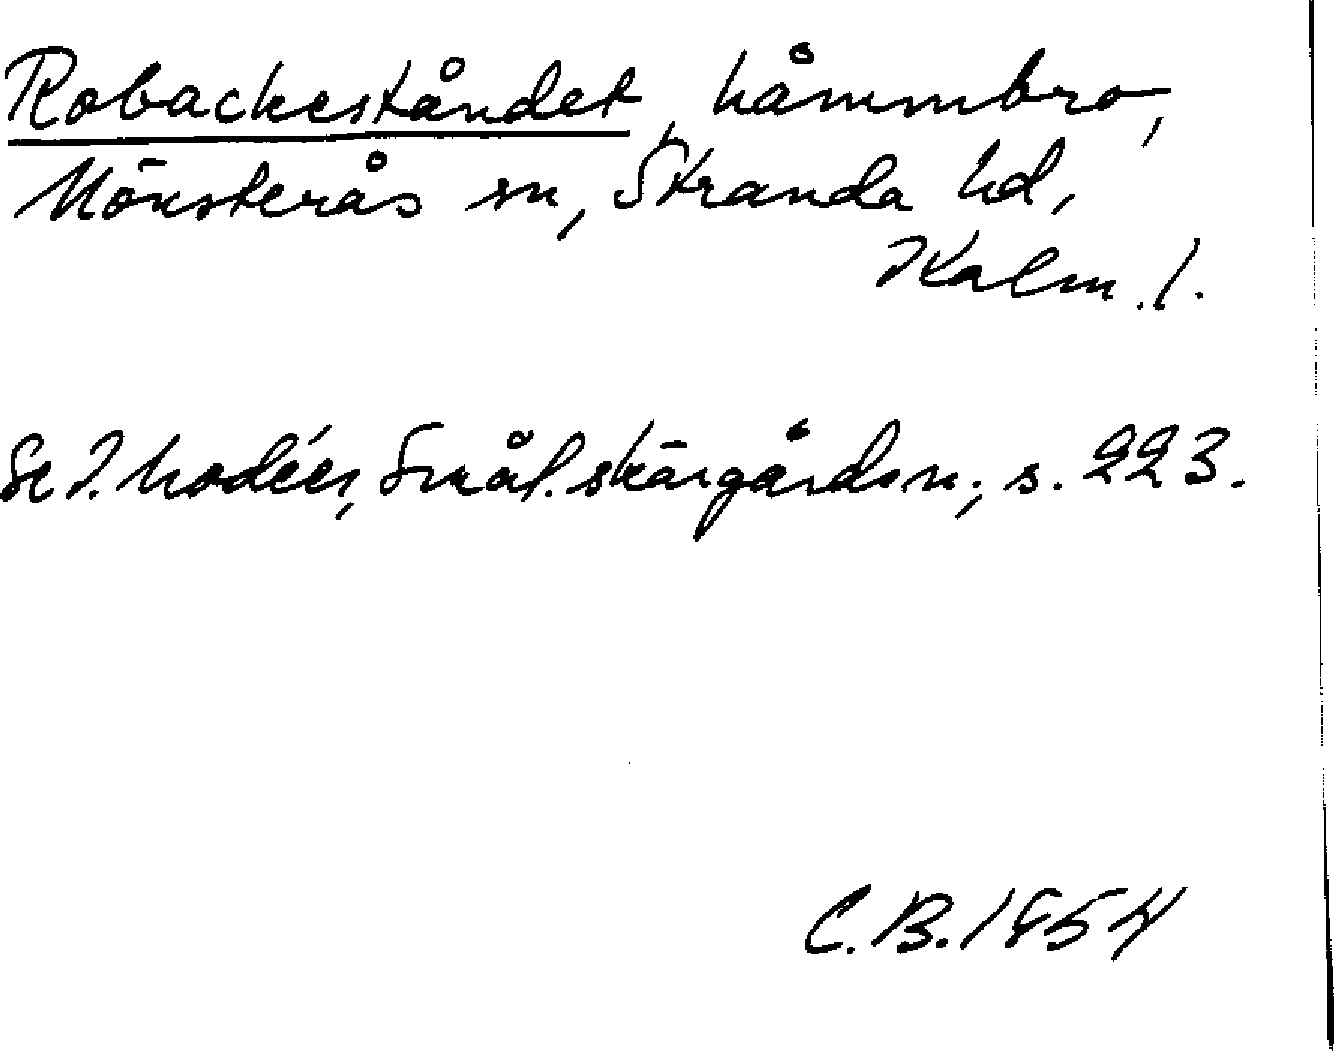 Robackeståndet, håmmbro,
Mönsterås sn, Stranda hd,
Kalm. l.
Se I. Modéer, Smål. skärgården, s. 223.
C.B. 1954